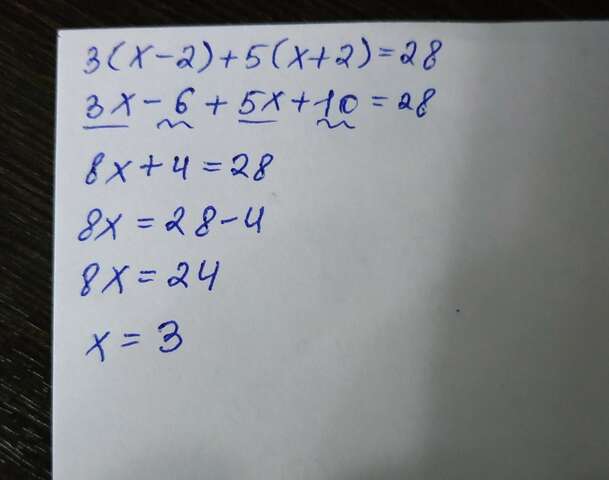 3(x-2)+5(x+2)=28
3x-6+5x+10=28
8x+4=28
8x=28-4
8x=24
x=3